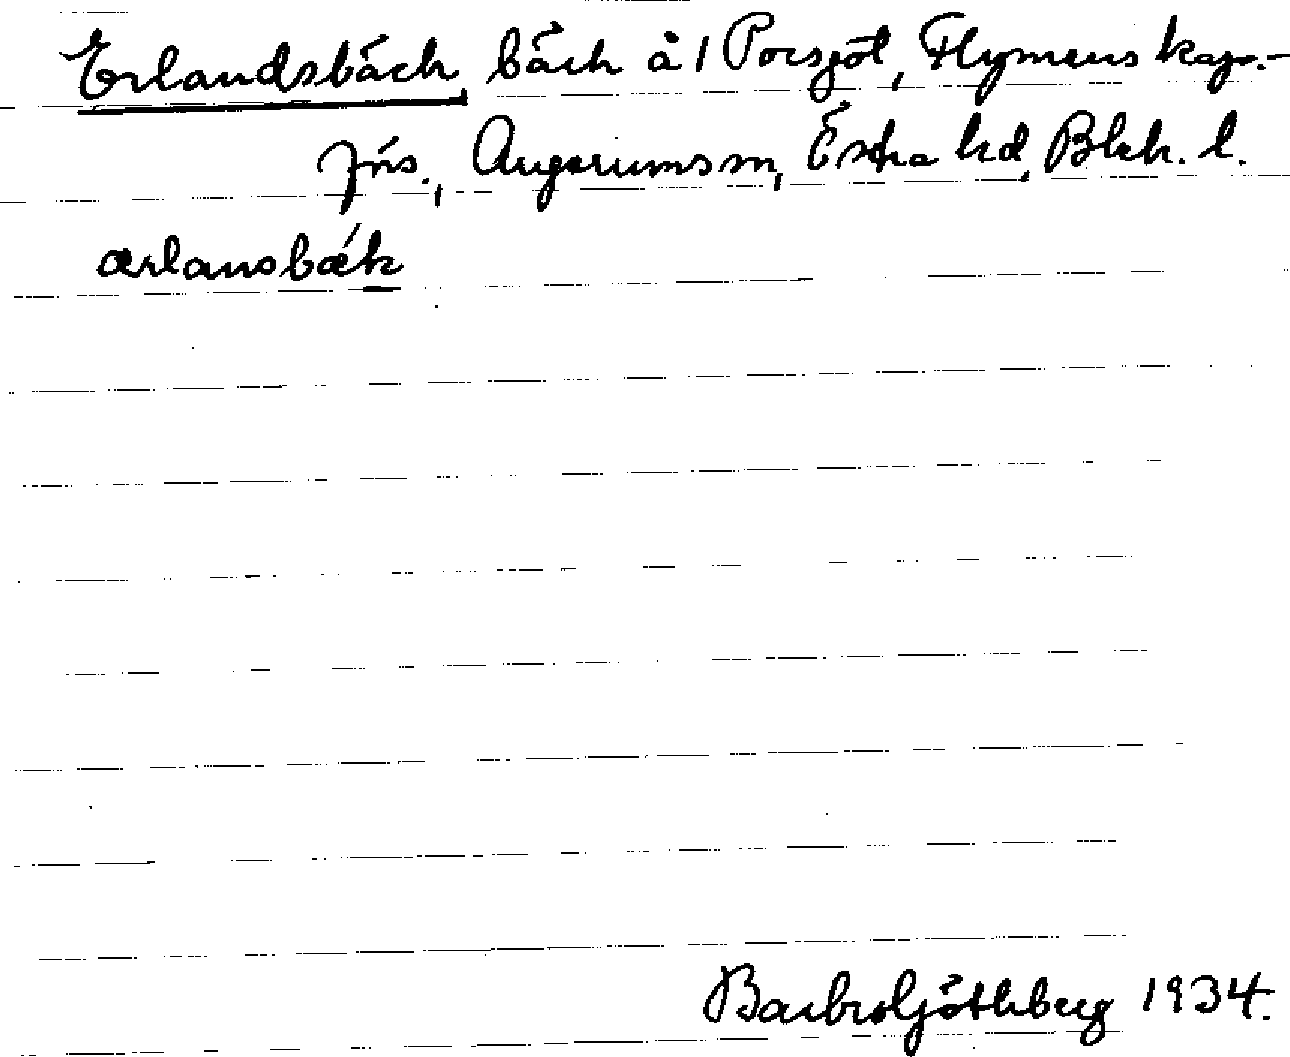 Erlandsbäck, bäck å 1 Porsgöl, Flymens kap.-
förs., Augerumssn, Östra hd, Blek. l.
ærlansbæ´k
Barbro Göthberg 1934.